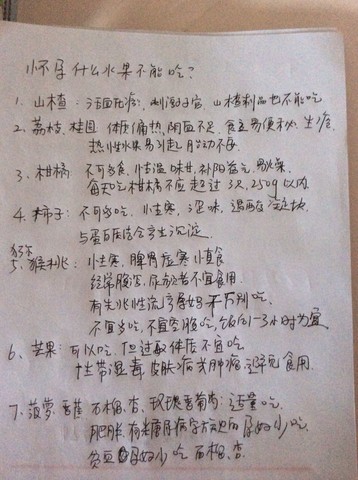 怀孕什么水果不能吃?
1、山楂:活血化瘀,刺激子宫,山楂制品也不能吃
2、荔枝、桂圆 体质偏热,阴血不足,食之易便秘,生疮
热性水果易引起胎动不安.
3、柑橘:不可多食,性温味甘,补阳益气,易上火.
每天吃柑橘不应超过3只,250g以内
4、柿子:不可多吃,性寒,涩味,遇酸 块
与蛋白质结合产生沉淀.
5、猕猴桃:性寒,脾胃虚寒慎食
经常腹泻,尿频者不宜食用.
有先兆性流产孕妇千万别吃.
不宜多吃,不宜空腹吃,饭后1-3小时为宜
6、芒果:可以吃.但过敏体质不宜吃
性带湿毒,皮肤病或肿瘤避免食用.
7、菠萝、香蕉 石榴、杏、玫瑰香葡萄:适量吃.
肥胖、有糖尿病 孕妇少吃.
贫血孕妇少吃石榴、杏.